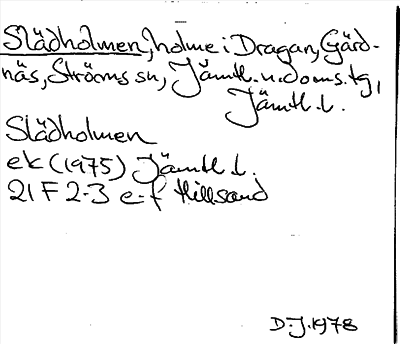 Slädholmen, holme i Dragan, Gärd-
näs, Ströms sn, Jämtl. n. doms. tg,
Jämtl. l.
Slädholmen
ek (1975) Jämtl. l.
21 F 2-3 e-f Hillsand
D.J. 1978